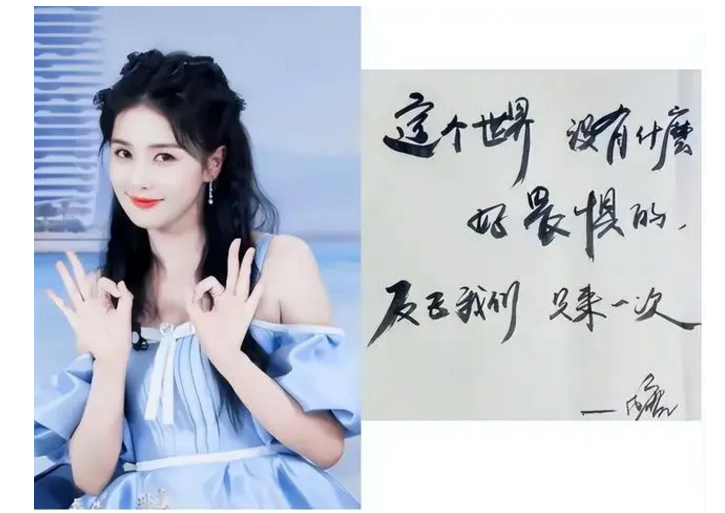 这个世界 没有什麽
好畏惧的，
反正我们 只来一次